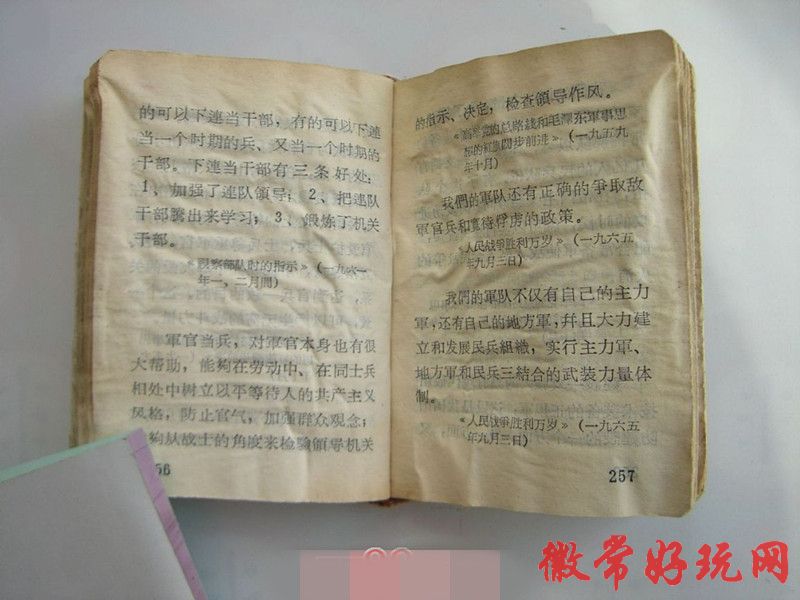 的可以下連当干部，有的可以下連
当一个时期的兵、又当一个时期的
干部。下連当干部有三条好处：
1、加强了連队領导；2、把連队
干部腾出来学习；3、鍛炼了机关
干部。
《視察部队时的指示》（一九六一
年一、二月間）
軍官当兵，对軍官本身也有很
大帮助，能夠在劳动中、在同士兵
相处中树立以平等待人的共产主义
风格，防止官气，加强群众观念；
夠从战士的角度来检驗領导机关
56
的指示、决定，检查領导作风。
《高举党的总路綫和毛澤东軍事思
想的紅旗闊步前进》（一九五九
年十月）
我們的軍队还有正确的爭取敌
軍官兵和寬待俘虏的政策。
《人民战爭胜利万岁》（一九六五
年九月三日）
我們的軍队不仅有自己的主力
軍，还有自己的地方軍，幷且大力建
立和发展民兵組織，实行主力軍、
地方軍和民兵三結合的武装力量体
制。
《人民战爭胜利万岁》（一九六五
年九月三日）
257
徽常好玩网